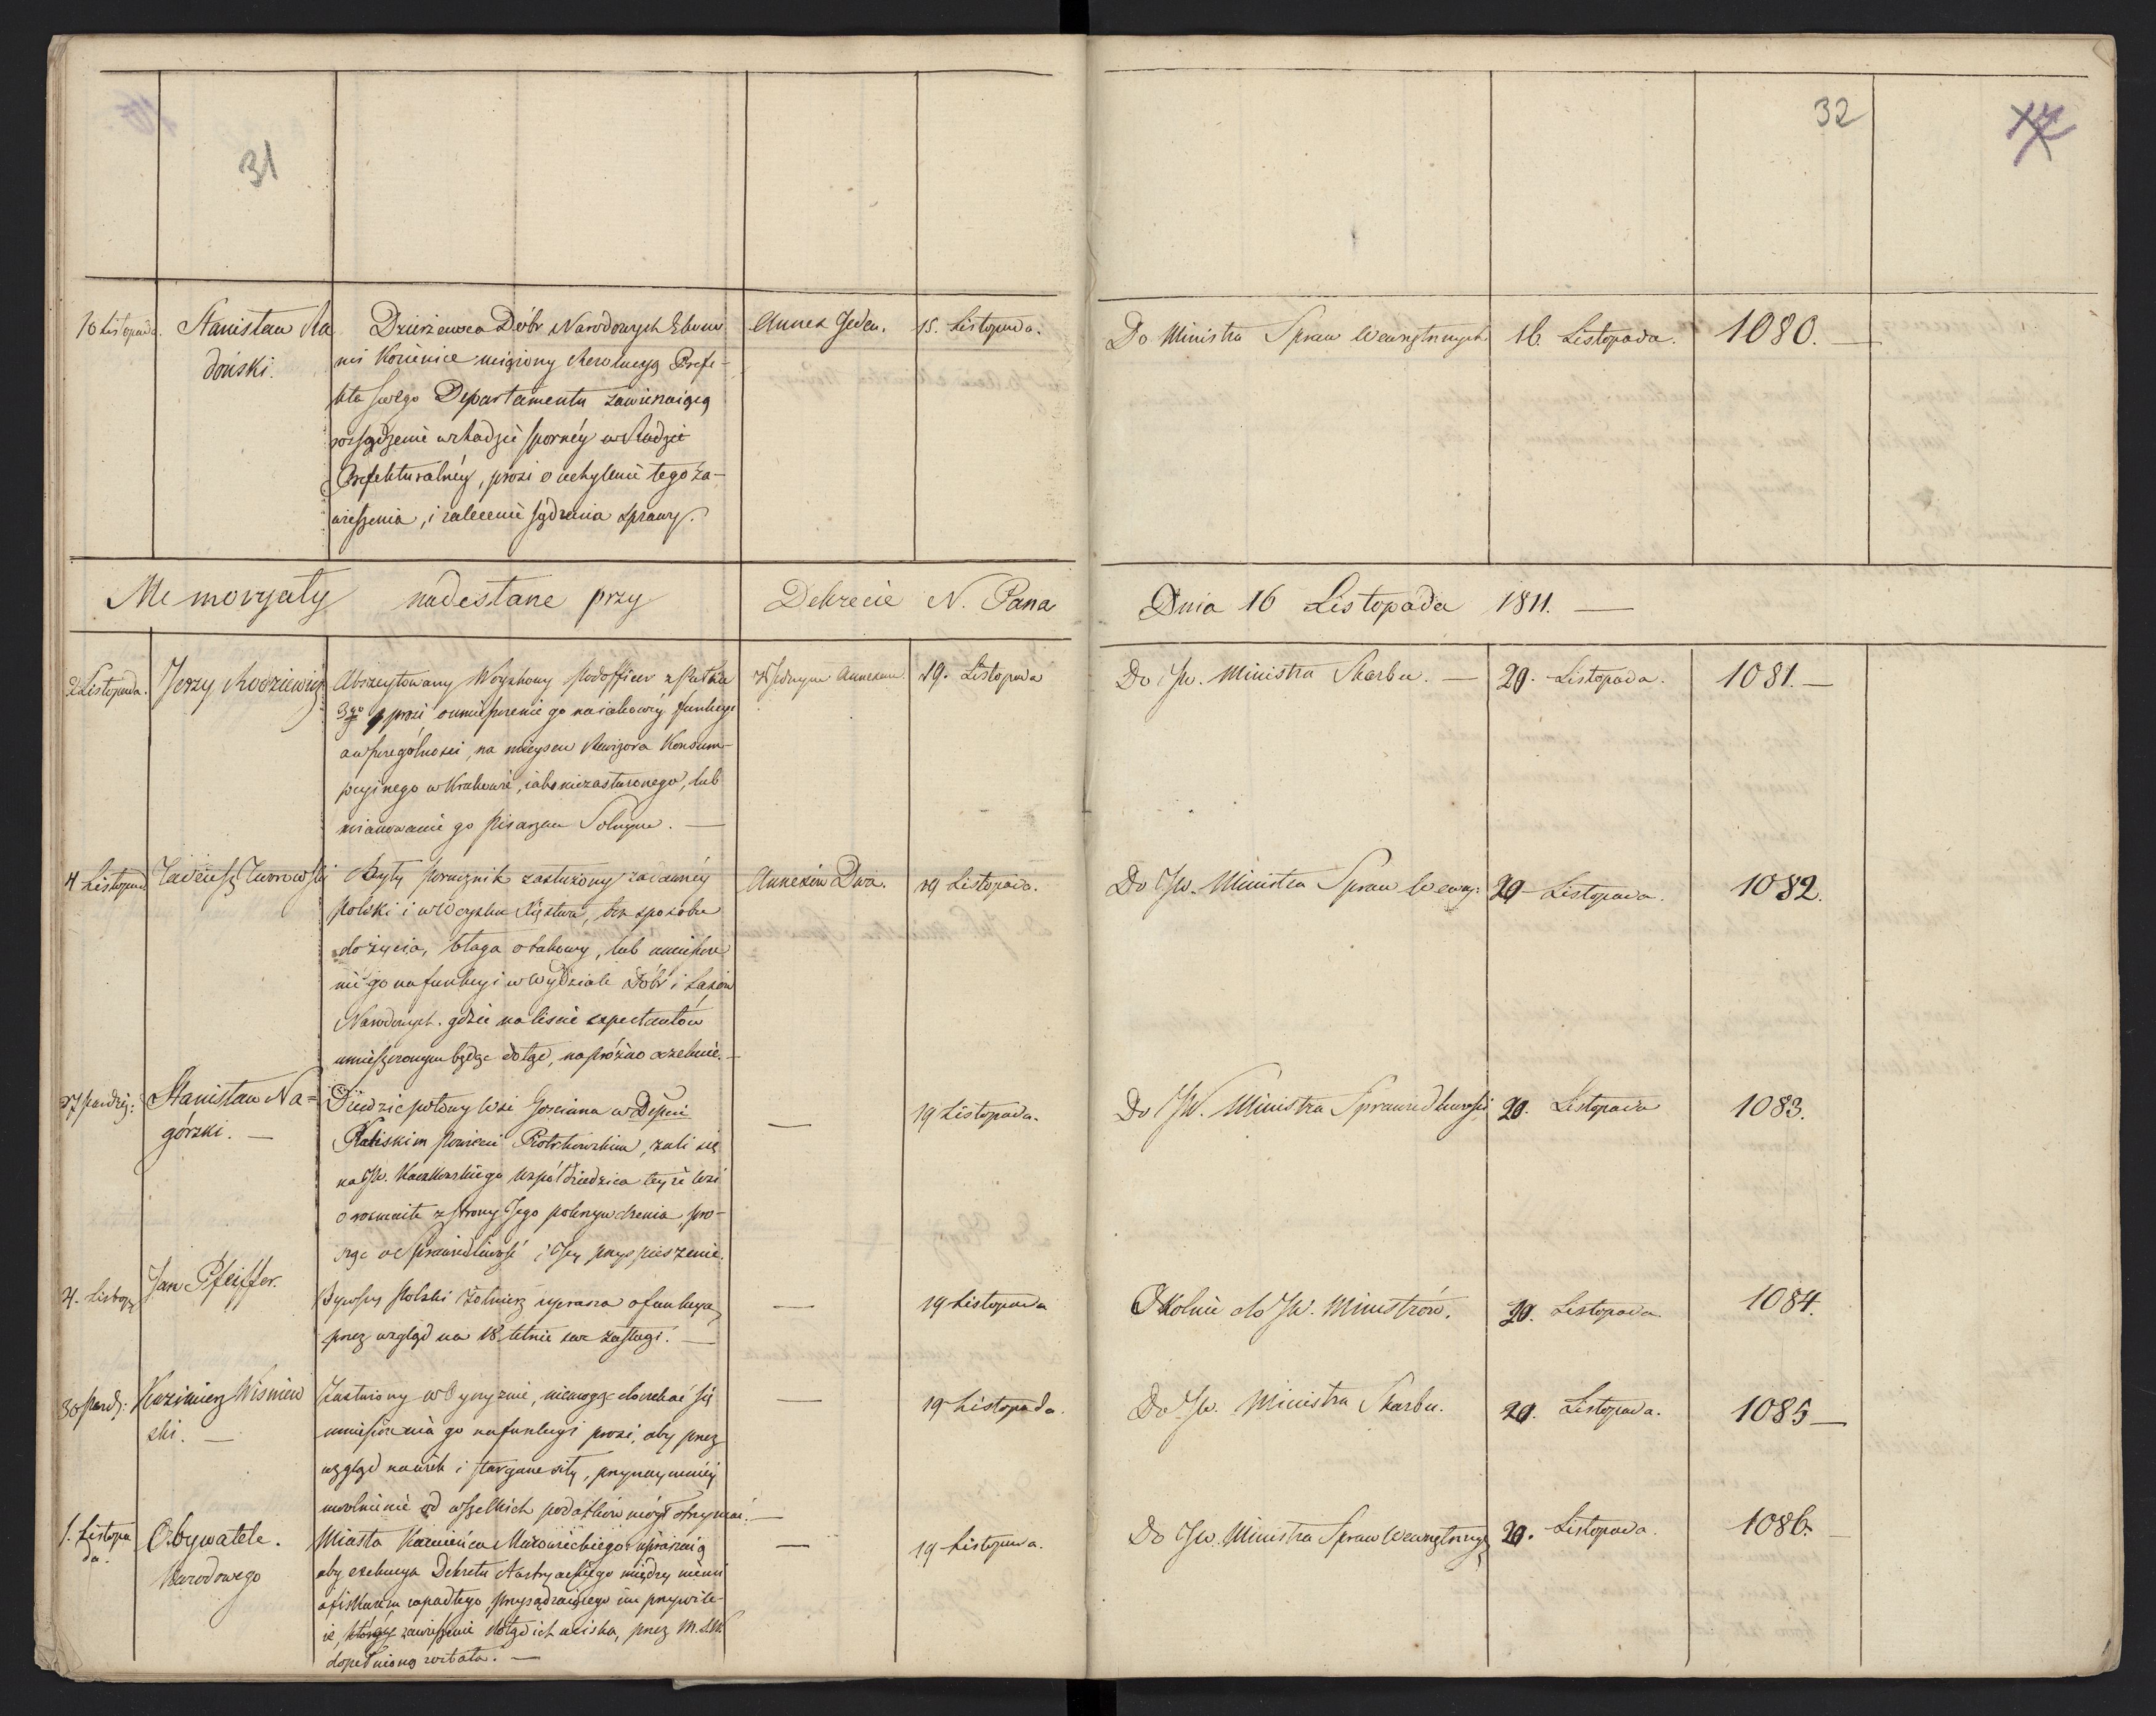 31
32
10 Listopada. Stanisław Ra
doński.
Dzierżawca Dóbr Narodowych
nii Kozienice Rezolucyą Prefe-
kta swego Departamentu zawieraiącą
rozsądzenie w Radzie
Prefekturalnéy, prosi o uchylenie tego za-
wieszenia, i zalecenie sądzenia sprawy.
Annex Jeden.
15. Listopada.
Do Ministra Spraw Wewnętrznych
16. Listopada.
1080. —
Memoryały nadesłane przy Dekrecie N. Pana Dnia 16 Listopada 1811. —
2 Listopada. Jerzy Rodziewicz
Abszytowany Woyskowy Podofficer z Pułku
3go prosi o umieszczenie go na iakowéy funkcyi
a w szczególności, na mieyscu Rewizora Konsum-
pcyinego w Krakowie, iako niezasłużonego, lub
mianowanie go Pisarzem Solnym. —
z Jednym Annexem.
19. Listopada
Do JW. Ministra Skarbu. —
20. Listopada.
1081. —
4 Listopad Tadeusz Żurowski
Były Porucznik zasłużony za dawnéy
Polski i w Woysku Xięstwa, bez sposobu
do życia, błaga o takowy, lub umieszcze
nie go na funkcyi w Wydziale Dóbr i Lasów
Narodowych. gdzie na liście expectantów
umieszczonym będąc dotąd, napróżno czekał. —
Annexów Dwa.
19 Listopada.
Do JW. Ministra Spraw Wewn:
20 Listopada.
1082.
27 Paźdz: Stanisław Na=
górski. —
Dziedzic połowy Wsi Gosciana w Depcie
Kaliskim Powiecie Piotrkowskim, żali się
na JW. Kaczkowskiego współdziedzica teyże Wsi
o rozmaite z strony Jego pokrzywdzenia, pro-
sząc o sprawiedliwość i Jey przyspieszenie.
—
19 Listopada.
Do JW. Ministra Sprawiedliwości
20. Listopada
1083.
4. Listop Jan Pfeiffer.
Bywszy Polski Żołnierz uprasza o funkcyą,
przez wzgląd na 18 letnie swe zasługi. —
—
19 Listopada
Okolnie do JW. Ministrów.
20. Listopada.
1084.
30 Paźdz: Kazimierz Wisniew
ski. —
Zasłużony w Oyczyznie, niemogąc doczekać się
umieszczenia go na funkcyi prosi, aby przez
wzgląd na wiek i stargane siły, przynaymniéy
uwolnienie od wszelkich podatków mógł otrzymać. —
—
19 Listopada.
Do JW. Ministra Skarbu.
20. Listopada.
1085 —
1. Listopa
da.
Obywatele.
Narodowego
Miasta Kamieńca Mazowieckiego upraszaią
aby exekucya Dekretu Austryackiego między niemi
a fiskusem zapadłego przysądzaiącego im przywile-
ie, zawieszenie dotąd ich uciska, przez M. SW.
dopełnioną została. —
—
19 Listopada.
Do JW. Ministra Spraw Wewnętrznych
20. Listopada.
1086.